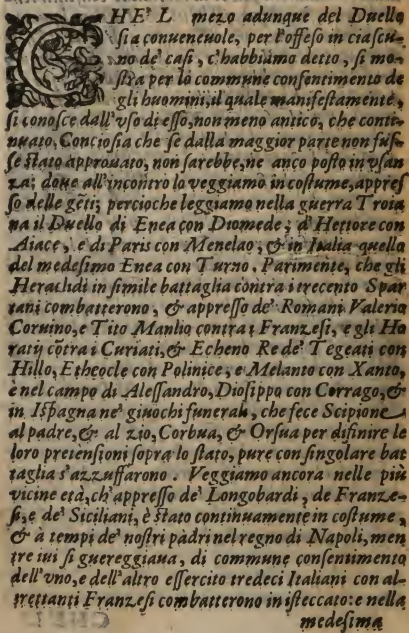 CHE'L mezo adunque del Duello
sia conueneuole, per l'offeso in ciascu-
no de' casi, c'habbiamo detto, si mo-
stra per lo commune consentimento de
gli huomini, il quale manifestamente,
si conosce dall'vso di esso, non meno antico, che conti-
nuato, Conciosia che se dalla maggior parte non fus-
se stato approuato, non sarebbe, ne anco posto in vsan
za; doue all'incontro lo veggiamo in costume, appres
so delle gēti; percioche leggiamo nella guerra Troia
na il Duello di Enea con Diomede; d'Hettore con
Aiace, e di Paris con Menelao, & in Italia quello
del medesimo Enea con Turno. Parimente, che gli
Heraclidi in simile battaglia contra i trecento Spar
tani combatterono, & appresso de' Romani Valerio
Coruino, e Tito Manlio contra i Franzesi, e gli Ho
ratij cōtra i Curiati, & Echeno Re de' Tegeati con
Hillo, Etheocle con Polinice, e Melanto con Xanto,
e nel campo di Alessandro, Diosippo con Corrago, &
in Ispagna ne' giuochi funerali, che fece Scipione
al padre, & al zio, Corbua, & Orsua per difinire le
loro pretensioni sopra lo stato, pure con singolare bat
taglia s'azzuffarono. Veggiamo ancora nelle più
vicine età, ch'appresso de' Longobardi, de Franze-
si, e de' Siciliani, è stato continuamente in costume,
& à tempi de' nostri padri nel regno di Napoli, men
tre iui si guereggiaua, di commune consentimento
dell'vno, e dell'altro essercito tredeci Italiani con al-
trettanti Franzesi combatterono in isteccato: e nella
medesima